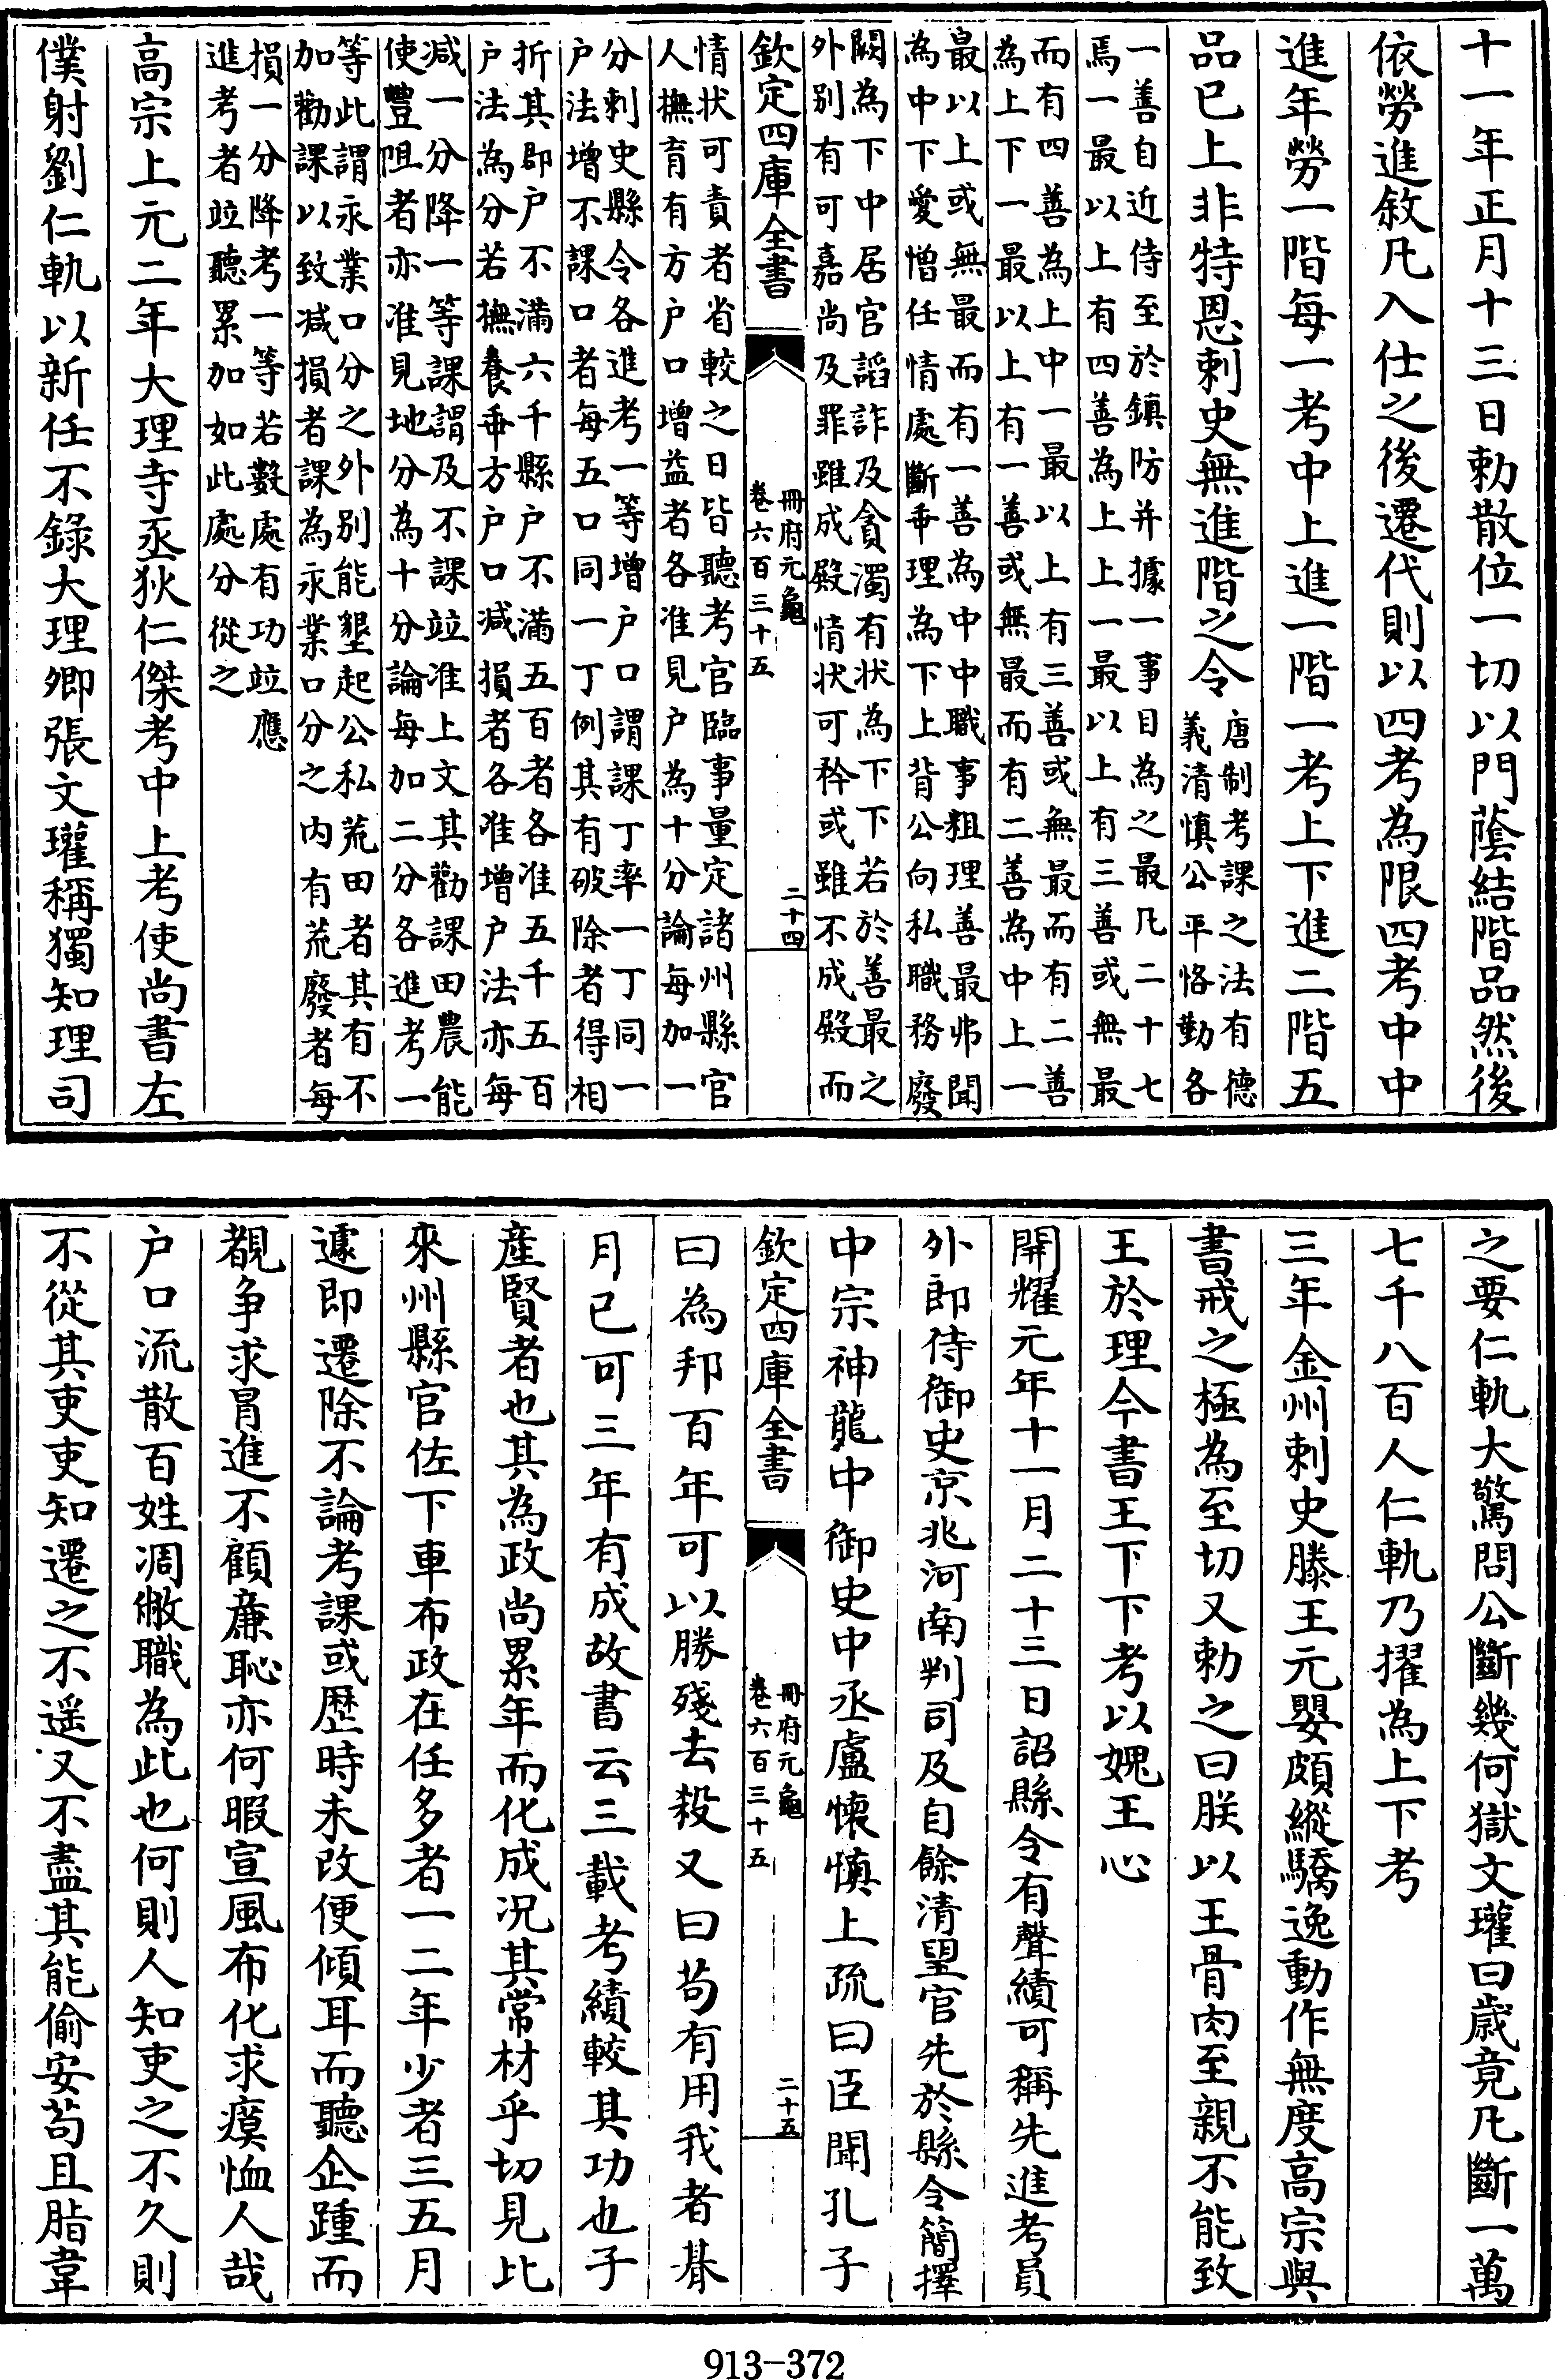 十一年正月十三日勅散位一切以門蔭結階品然後
依勞進敘凡入仕之後遷代則以四考為限四考中中
進年勞一階每一考中上進一階一考上下進二階五
品已上非特恩剌史無進階之令
唐制考課之法有德
義清慎公平恪勤各
一善自近侍至於鎮防并據一事目為之最凡二十七
焉一最以上有四善為上上一最以上有三善或無最
而有四善為上中一最以上有三善或無最而有二善
為上下一最以上有一善或無最而有二善為中上一
最以上或無最而有一善為中中職事粗理善最弗聞
為中下愛憎任情處斷乖理為下上背公向私職務廢
闕為下中居官諂詐及貪濁有状為下下若於善最之
外別有可嘉尚及罪雖成殿情状可矜或雖不成殿而
欽定四庫全書
冊府元龜
卷六百三十五
二十四
情状可責者省較之日皆聽考官臨事量定諸州縣官
人撫育有方户口增益者各准見户為十分論每加一
分刺史縣令各進考一等增户口謂課丁率一丁同一
户法增不課口者每五口同一丁例其有破除者得相
折其郡户不滿六千縣户不滿五百者各准五千五百
户法為分若撫養乖方户口减損者各准增户法亦每
减一分降一等課謂及不課竝准上文其勸課田農能
使豐阻者亦准見地分為十分論每加二分各進考一
等此謂永業口分之外別能墾起公私荒田者其有不
加勸課以致减損者課為永業口分之内有荒廢者每
損一分降考一等若數處有功竝應
進考者竝聽累加如此處分從之
高宗上元二年大理寺丞狄仁傑考中上考使尚書左
僕射劉仁軌以新任不錄大理卿張文瓘稱獨知理司
之要仁軌大驚問公斷幾何獄文瓘曰歲竟凡斷一萬
七千八百人仁軌乃擢為上下考
三年金州刺史滕王元嬰頗縱驕逸動作無度高宗與
書戒之極為至切又勅之曰朕以王骨肉至親不能致
王於理今書王下下考以媿王心
開耀元年十一月二十三日詔縣令有聲績可稱先進考員
外郎侍御史京兆河南判司及自餘清望官先於縣令簡擇
中宗神龍中御史中丞盧懷慎上疏曰臣聞孔子
欽定四庫全書
冊府元龜
卷六百三十五
二十五
曰為邦百年可以勝殘去殺又曰苟有用我者朞
月已可三年有成故書云三載考績較其功也子
產賢者也其為政尚累年而化成况其常材乎切見比
來州縣官佐下車布政在任多者一二年少者三五月
遽即遷除不論考課或歷時未改便傾耳而聽企踵而
覩争求冒進不顧廉恥亦何暇宣風布化求瘼恤人哉
户口流散百姓凋敝職為此也何則人知吏之不久則
不從其吏吏知遷之不遥又不盡其能偷安苟且脂韋
913-372